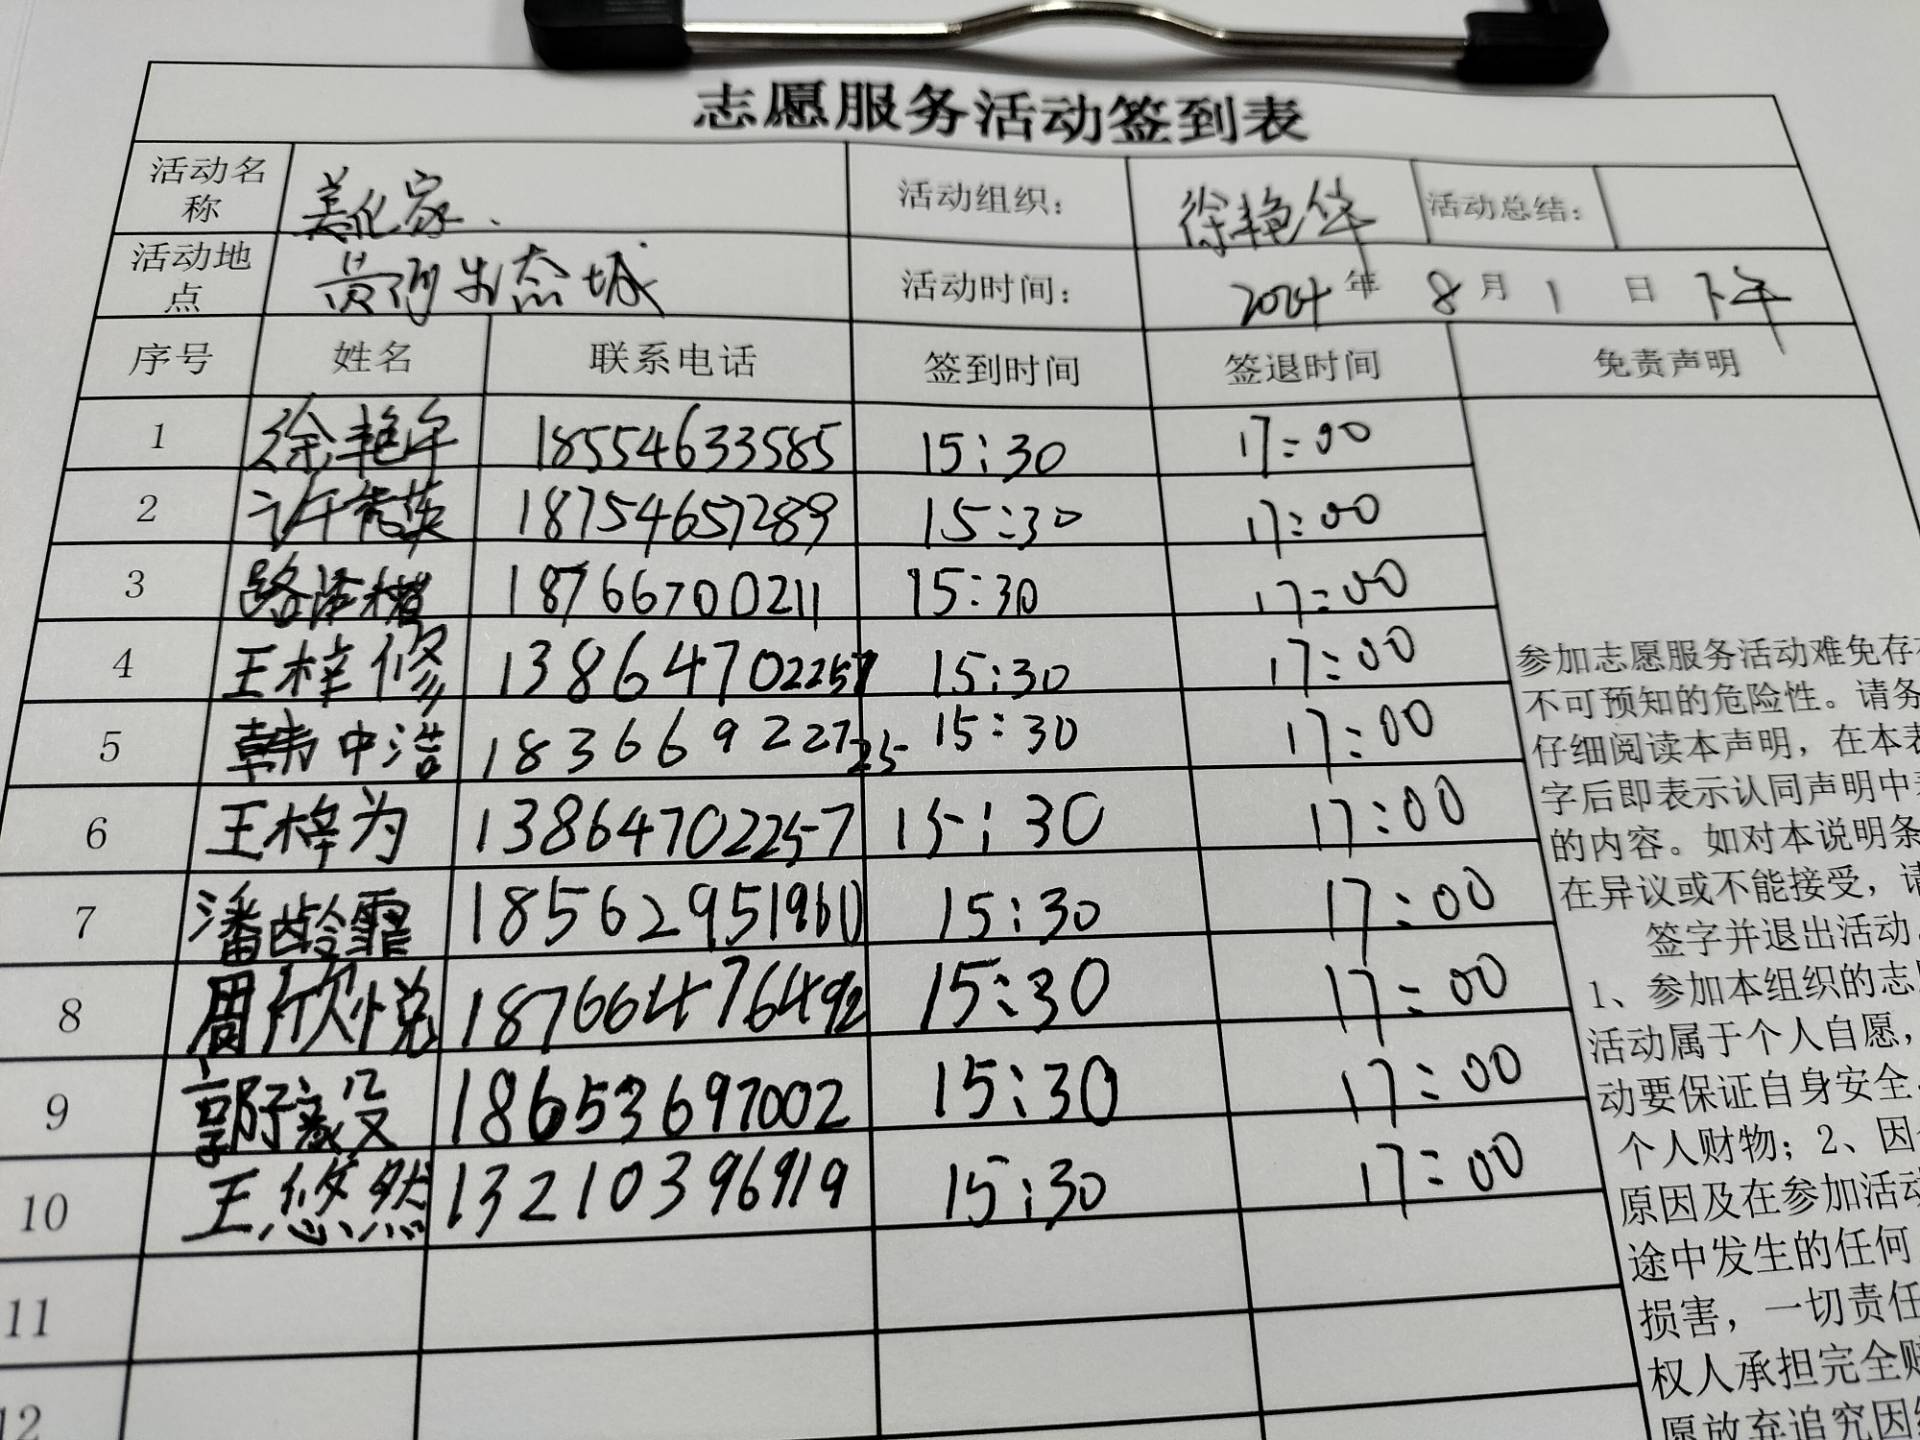 志愿服务活动签到表
活动名称 美化家 活动组织： 徐艳华 活动总结：
活动地点 黄河生态城 活动时间： 2024年 8月 1日 下午
序号 姓名 联系电话 签到时间 签退时间 免责声明
1 徐艳华 18554633585 15:30 17:00
2 18754657289 15:30 17:00
3 18766700211 15:30 17:00
4 王梓修 13864702257 15:30 17:00
5 韩中浩 18366922725 15:30 17:00
6 王梓为 13864702257 15:30 17:00
7 潘龄霏 18562951960 15:30 17:00
8 周欣悦 18766476492 15:30 17:00
9 18653697002 15:30 17:00
10 王悠然 13210396919 15:30 17:00
11
12
参加志愿服务活动难免存在
不可预知的危险性。请务
仔细阅读本声明，在本表
字后即表示认同声明中
的内容。如对本说明条
在异议或不能接受，请
签字并退出活动
1、参加本组织的志愿
活动属于个人自愿，
动要保证自身安全
个人财物；2、因
原因及在参加活动
途中发生的任何
损害，一切责任
权人承担完全
愿放弃追究因